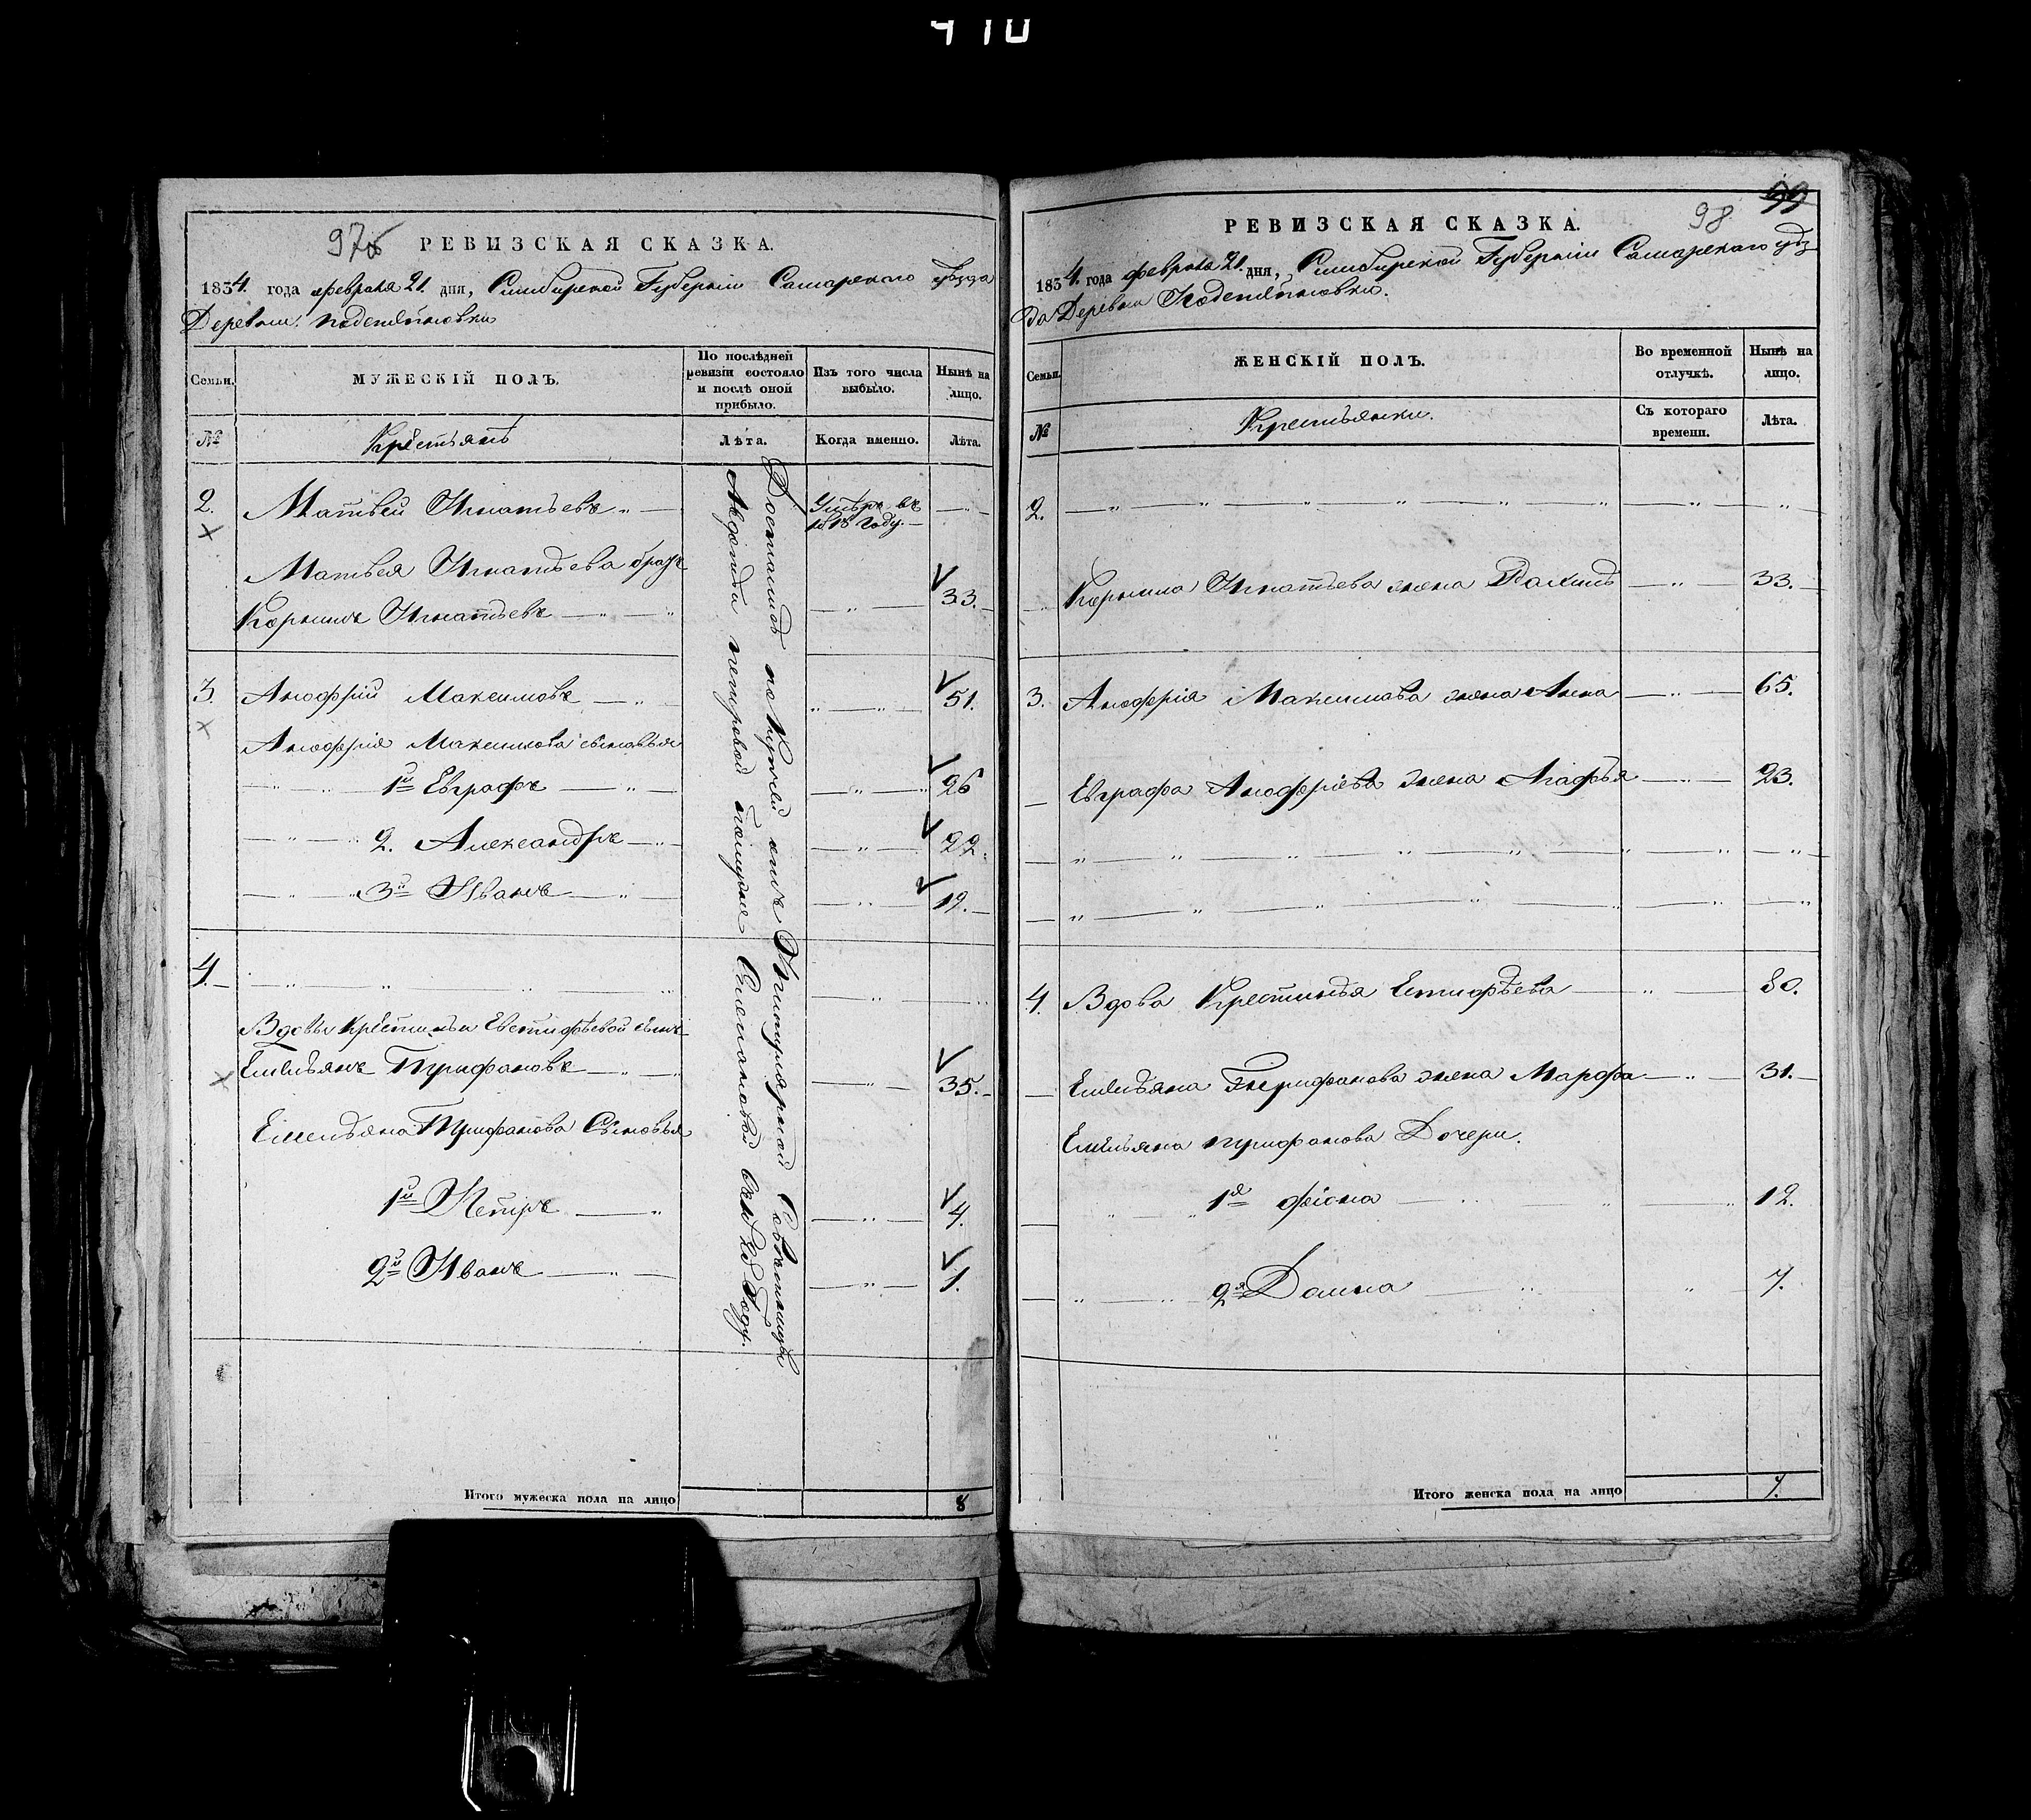 410
97об
РЕВИЗСКАЯ СКАЗКА.
1834. года февраля 21. дня, Симбирской Губернiи Самарского уѣзда
Деревни
Семьи.
МУЖЕСКIЙ ПОЛЪ.
По послѣдней ревизiи состояло и послѣ оной прибыло.
Изъ того числа выбыло.
Нынѣ на лицо.
№
Крестьянъ
Лѣта.
Когда именно.
Лѣта.
Досталась по купчей отъ Титулярной Совѣтницы
Авдотьи Петровой
2. Матвей Игнатьевъ Умѣръ въ году.
Матвея Игнатьева братъ
Корнилъ Игнатьевъ 33.
3. Анофрiй Максимовъ 51.
Анофрiя Максимова сыновья
1й Евграфъ 26
2. Александръ 22.
3й Иванъ 19.
4.
Вдовы Крестиньи Евстифѣевой сынъ
Емельянъ Трифановъ 35.
Емельяна Трифанова Сыновья
1й Петръ 4.
2й Иванъ 1.
Итого мужеска пола на лицо 8
99
98
РЕВИЗСКАЯ СКАЗКА.
1834. года февраля 21. дня, Симбирской Губернiи Самарского уѣз
да Деревни
Семьи.
ЖЕНСКIЙ ПОЛЪ.
Во временной отлучкѣ.
Нынѣ на лицо.
№
Крестьянки.
Съ котораго времени.
Лѣта.
2.
Корнила Игнатьева жена 33.
3. Анофрiя Максимова жена Анна 65.
Евграфа Анофрiева жена Агафья 23.
4. Вдова Крестинья Естифѣева 80.
Емельяна Трифанова жена Марфа 31.
Емельяна Трифанова Дочери.
1я Фiона 12.
2я Домна 7.
Итого женска пола на лицо 7.